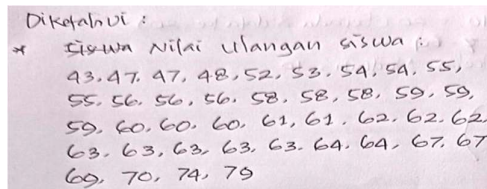 Diketahui :
* siswa Nilai ulangan siswa :
43, 47, 47, 48, 52, 53, 54, 54, 55,
55, 56, 56, 56, 58, 58, 58, 59, 59,
59, 60, 60, 60, 61, 61, 62, 62, 62,
63, 63, 63, 63, 63, 64, 64, 67, 67
69, 70, 74, 79